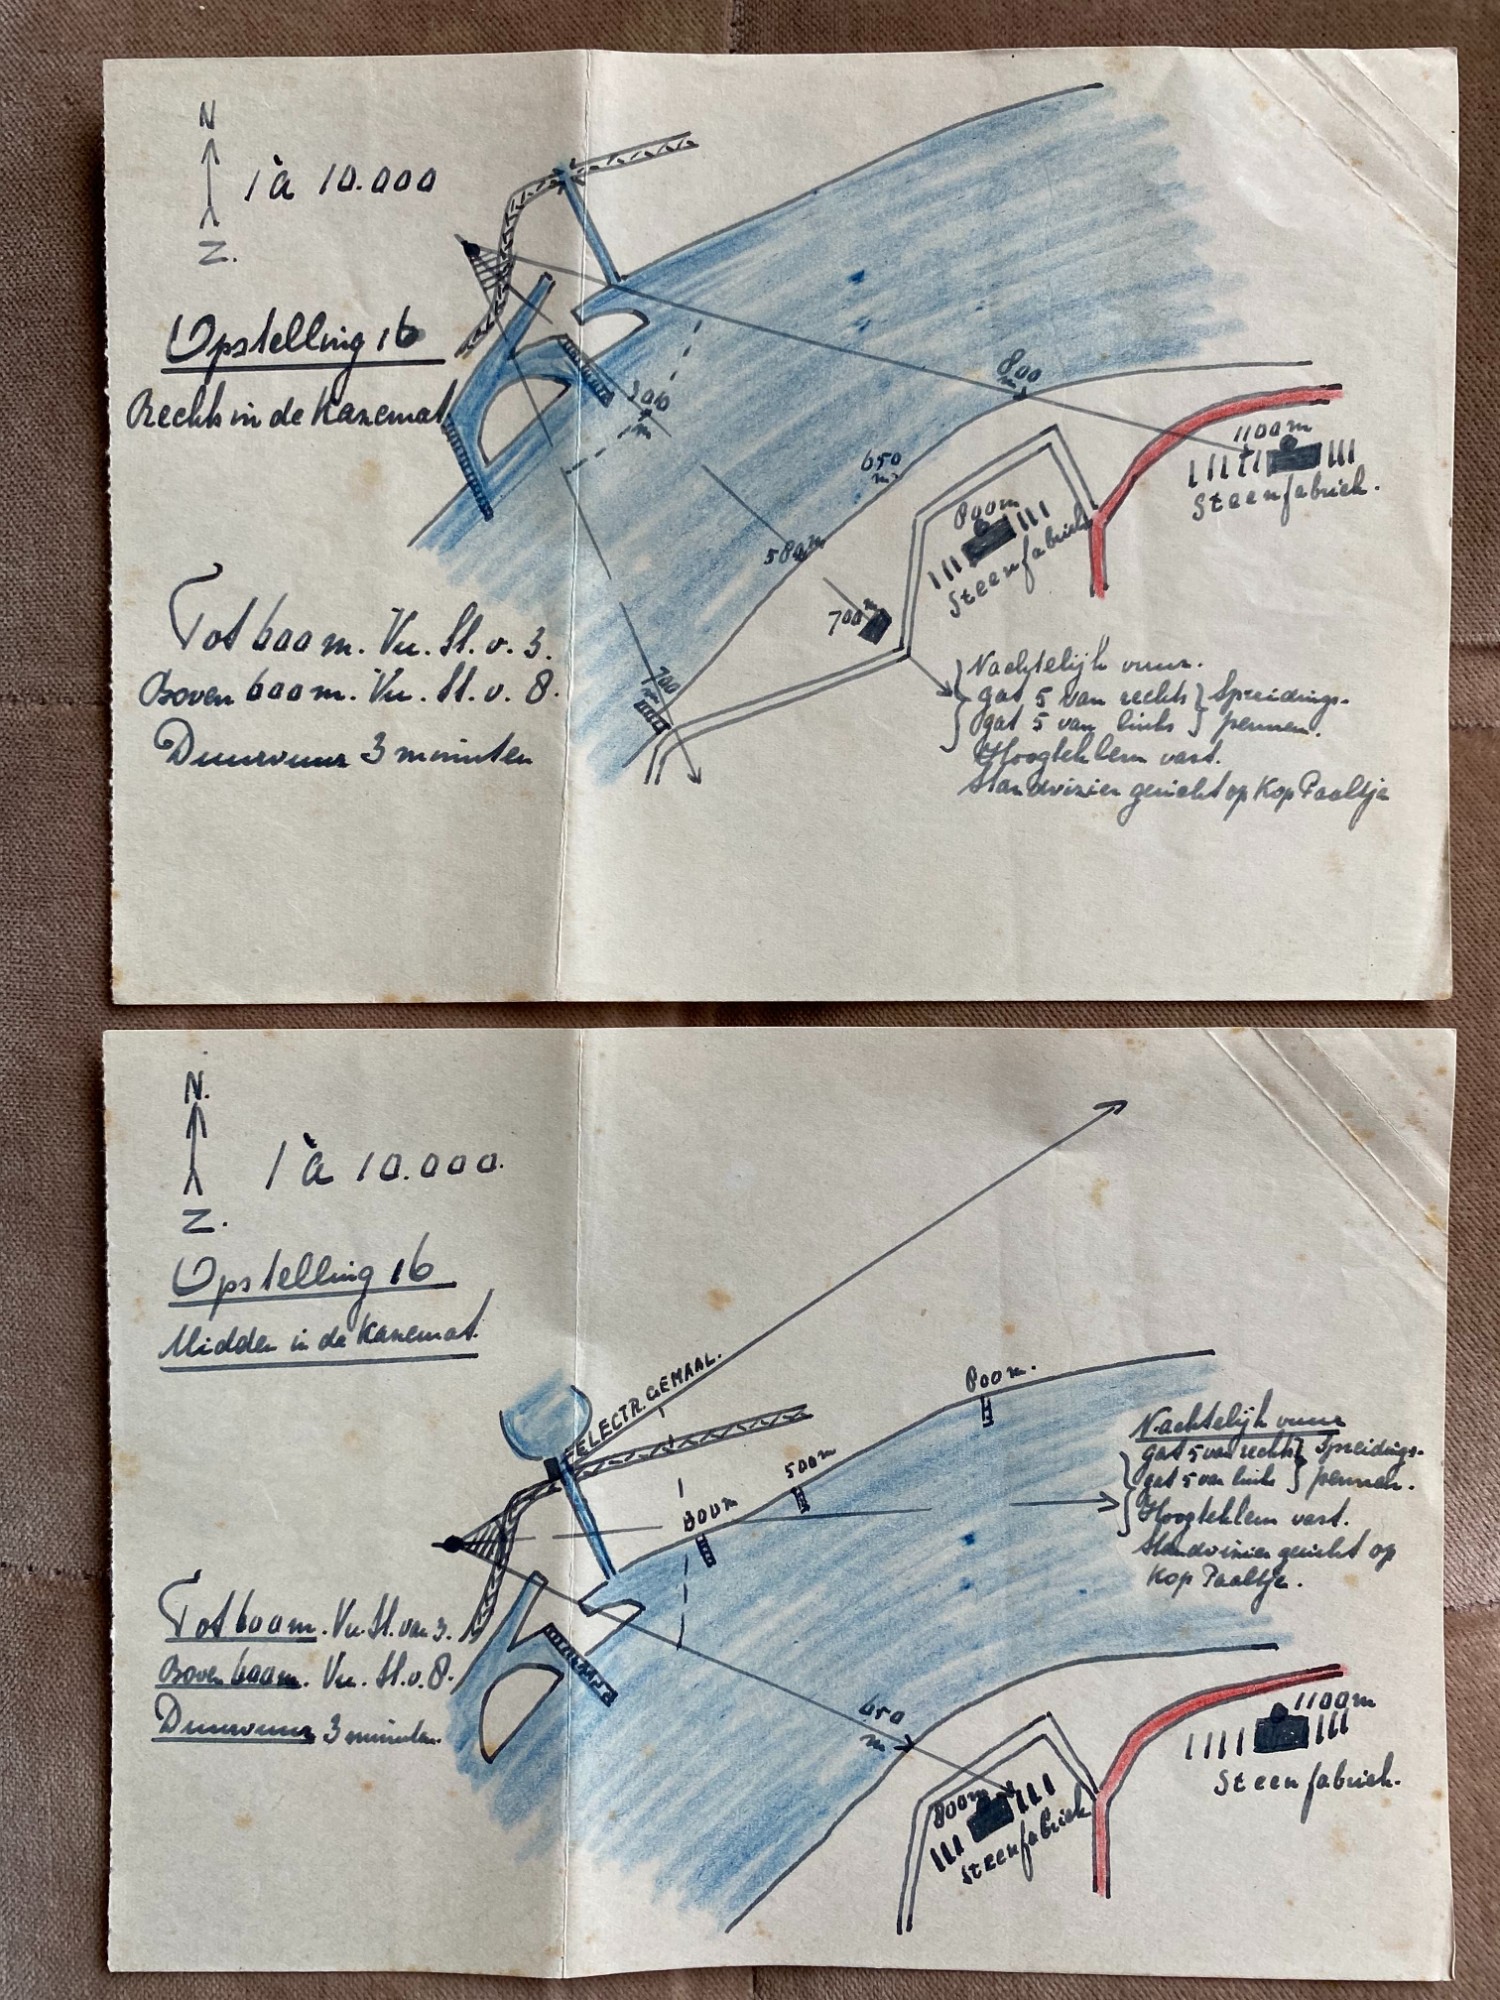 N
1 à 10.000
Z.
Opstelling 16
Rechts in de Kazemat.
300
m
800
m
650
m.
580m
700m
700
m
1100m
Steenfabriek.
800m
Steenfabriek
Tot 600 m. Vu. St. v. 3.
Boven 600 m. Vu. St. v. 8.
Duurvuur 3 minuten
Nachtelijk vuur.
gat 5 van rechts } Spreidings-
gat 5 van links } pennen.
Hoogteklem vast.
Standvizier gericht op Kop Paaltje
N.
1 à 10.000.
Z.
Opstelling 16
Midden in de Kazemat.
ELECTR. GEMAAL.
300m
500m
800m.
Nachtelijk vuur
gat 5 van rechts } Spreidings-
gat 5 van links } pennen.
Hoogteklem vast.
Standvizier gericht op
Kop Paaltje.
Tot 600m. Vu. St. van 3.
Boven 600m. Vu. St. v. 8.
Duurvuur 3 minuten.
650
m
1100m
Steenfabriek.
800m
Steenfabriek